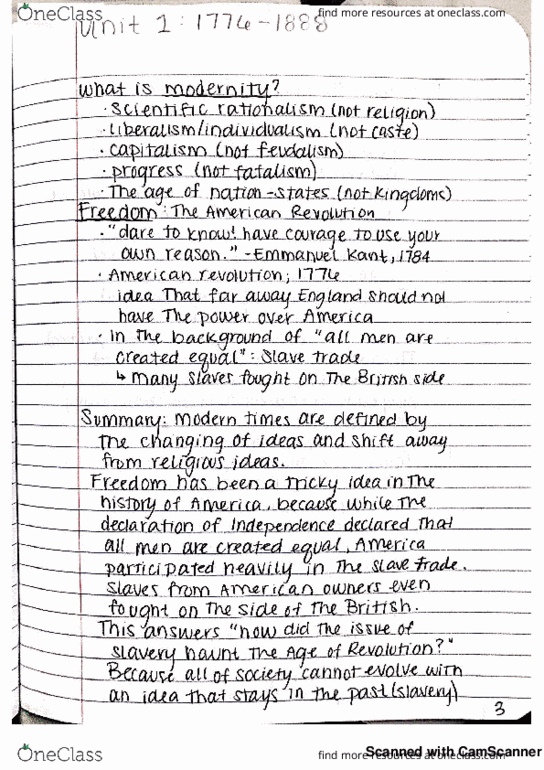 OneClass
find more resources at oneclass.com
Unit 1: 1776-1888
What is modernity?
· Scientific rationalism (not religion)
· liberalism/individualism (not caste)
· capitalism (not feudalism)
· progress (not fatalism)
· The age of nation-states (not kingdoms)
Freedom: The American Revolution
· "dare to know! have courage to use your
own reason." - Emmanuel Kant, 1784
· American revolution; 1776
idea That far away England should not
have The power over America
· in the background of "all men are
created equal": Slave trade
↳ many slaves fought on The British side
Summary: Modern times are defined by
The changing of ideas and shift away
from religious ideas.
Freedom has been a tricky idea in The
history of America, because while The
declaration of Independence declared That
all men are created equal, America
participated heavily in The slave trade.
Slaves from American owners even
fought on The side of The British.
This answers "how did The issue of
slavery haunt The Age of Revolution?"
Because all of society cannot evolve with
an idea that stays in the past (slavery)
3
OneClass
find more resources at oneclass.com
Scanned with CamScanner